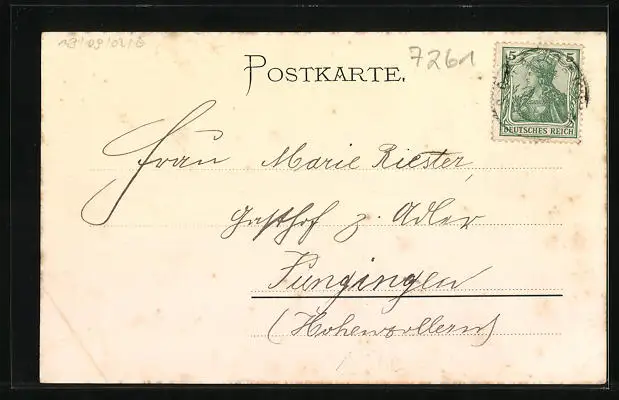 7261
POSTKARTE.
5 5
DEUTSCHES REICH
Frau Marie Riester,
Gasthof z. Adler
Jungingen
(Hohenzollern)